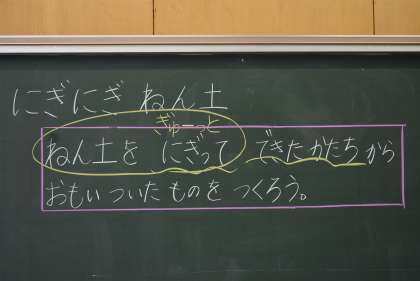 にぎにぎ ねん土
ぎゅーっと
ねん土を にぎって できたかたちから
おもいついたものをつくろう。